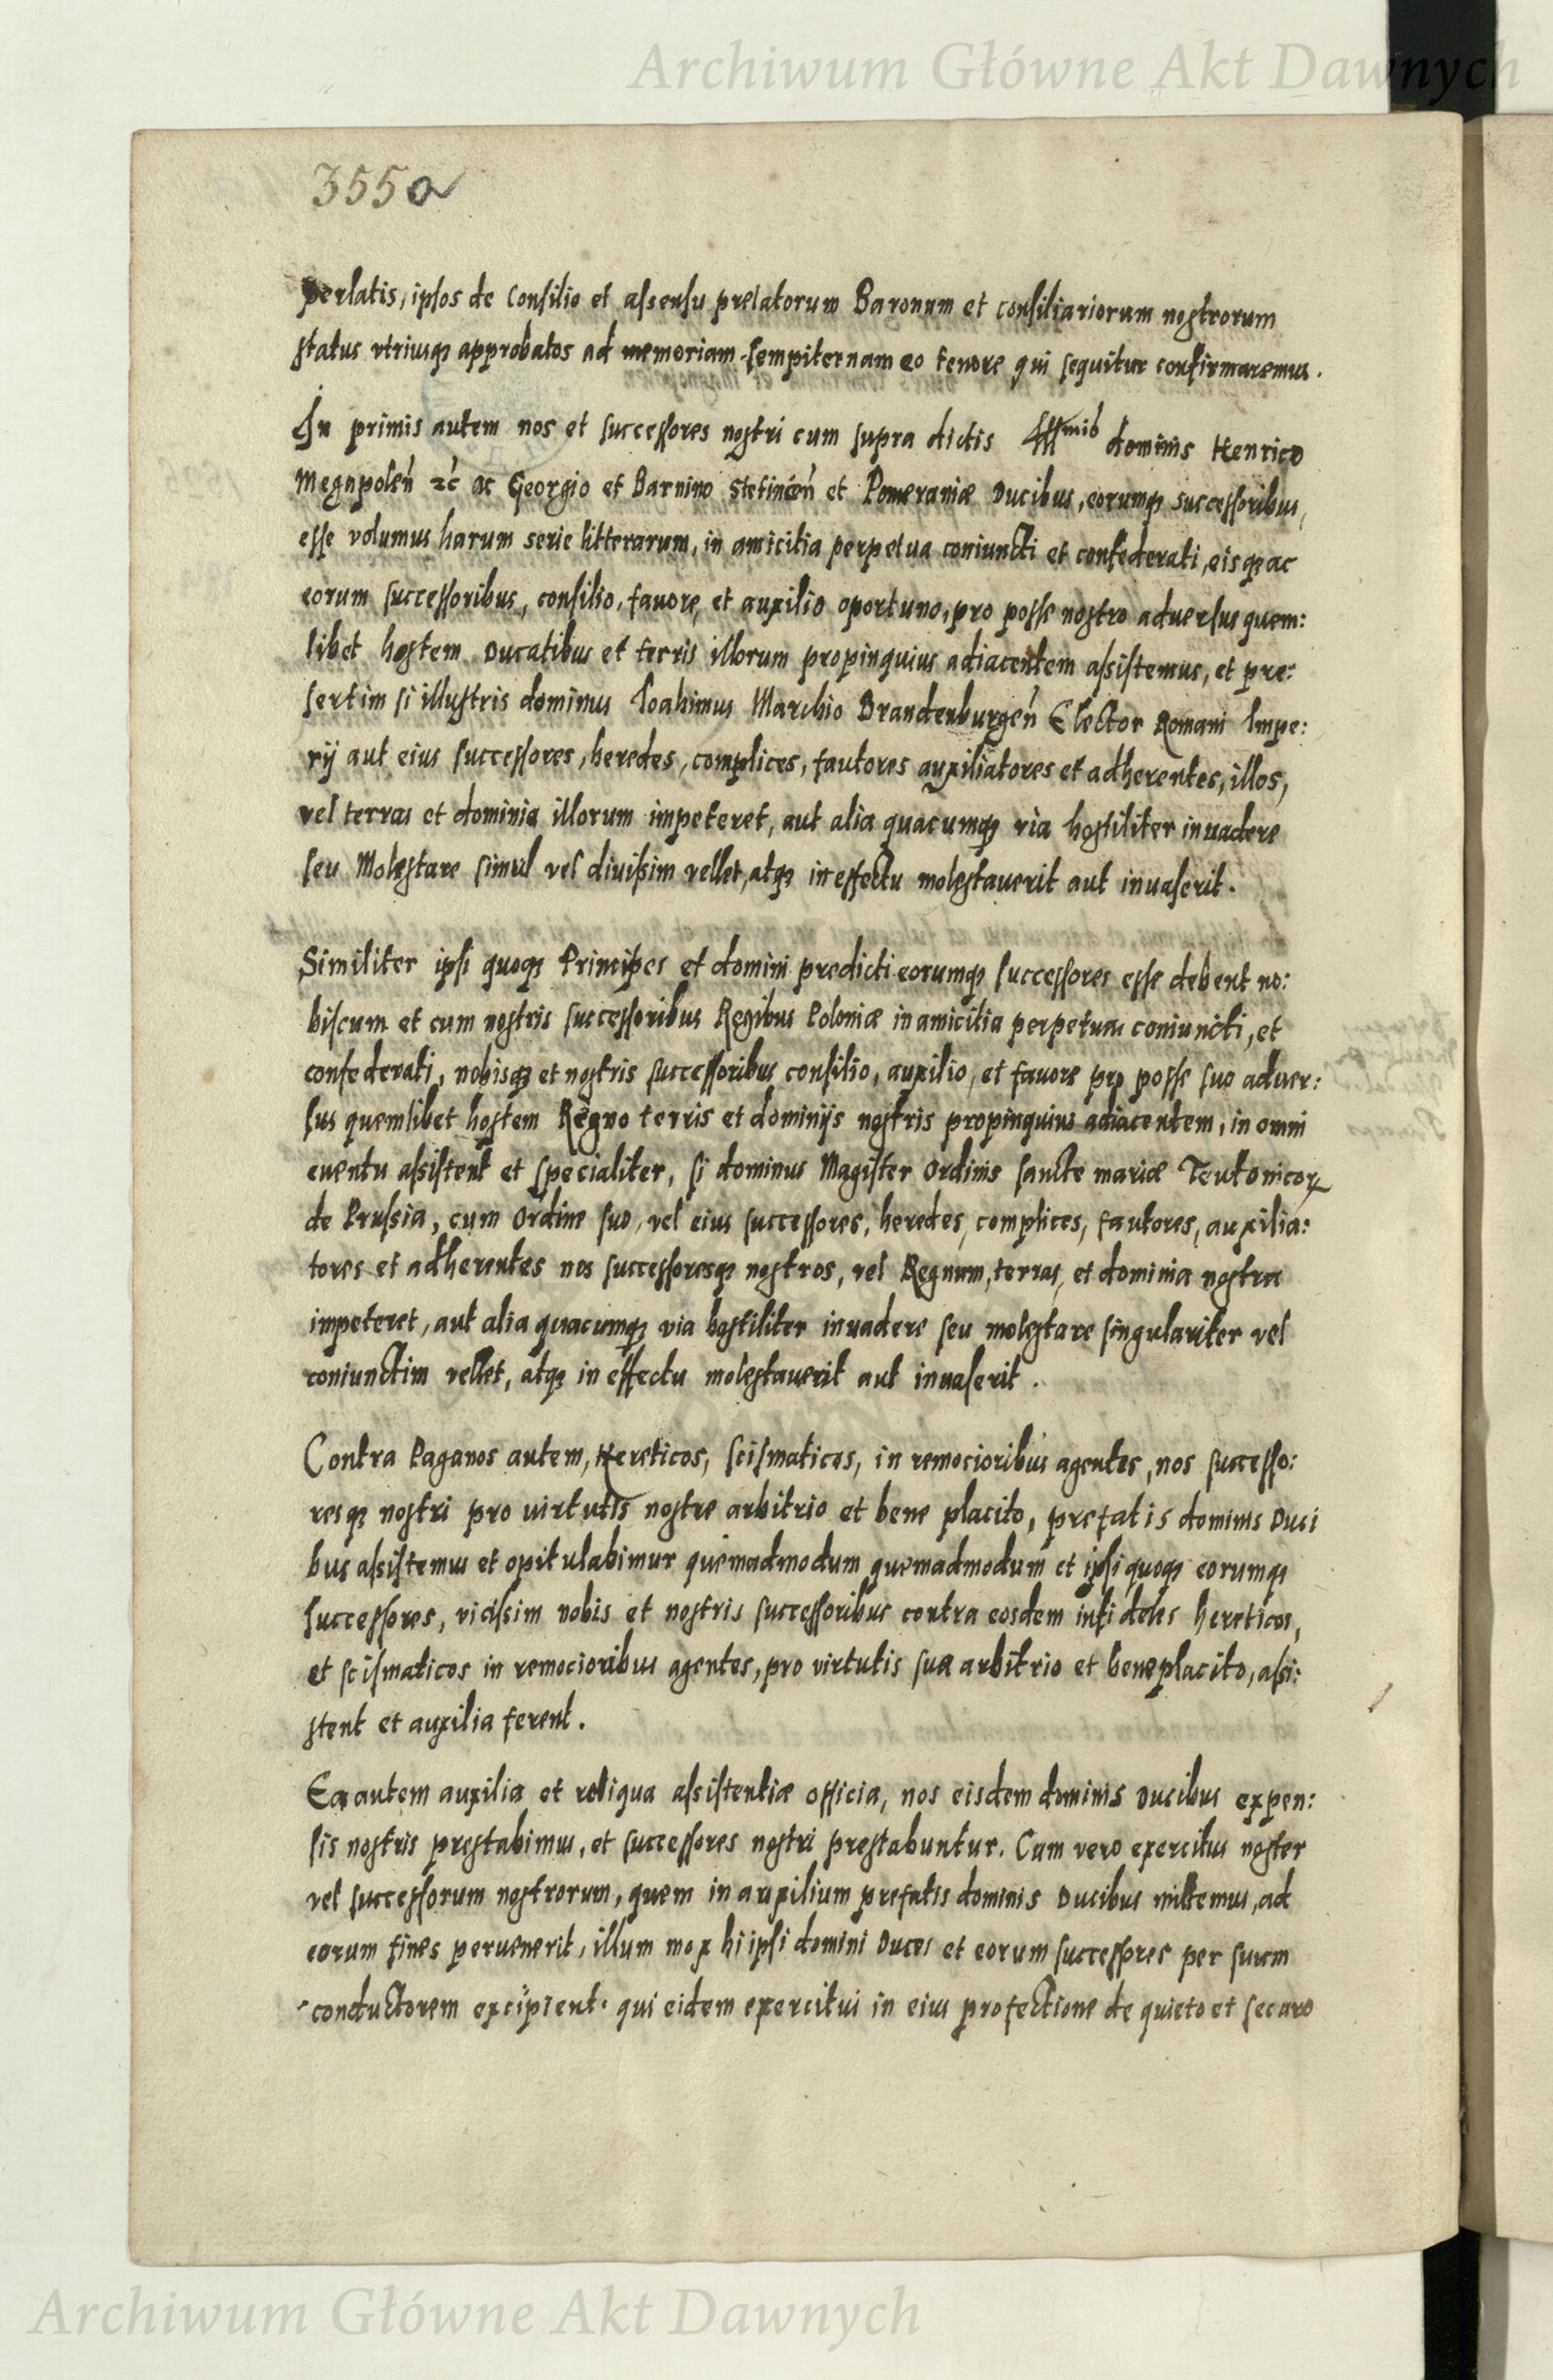 Archiwum Główne Akt Dawnych
355a
perlatis, ipsos de Consilio et assensu prelatorum Baronum et consiliariorum nostrorum
status vtriusqꝫ approbatos ad memoriam sempiternam eo tenore qui sequitur confirmaremus.
In primis autem nos et successores nostri cum supra dictis Illmis dominis Henrico
Megapoleñ ꝛc̃ ac Georgio et Barnino Stetineñ et Pomeraniæ Ducibus, eorumqꝫ successoribus,
esse volumus harum serie litterarum, in amicitia perpetua coniuncti et confederati, eisqꝫ ac
eorum successoribus, consilio, fauore, et auxilio oportuno, pro posse nostro aduersus quem:
libet hostem Ducatibus et terris illorum propinquius adiacentem assistemus, et pre:
sertim si illustris dominus Ioahimus Marchio Brandenburgeñ Elector Romani Impe:
rij aut eius successores, heredes, complices, fautores auxiliatores et adherentes, illos,
vel terras et dominia illorum impeteret, aut alia quacumqꝫ via hostiliter inuadere
seu Molestare simul vel diuisim vellet, atqꝫ in effectu molestauerit aut inuaserit.
Similiter ipsi quoqꝫ Principes et domini predicti eorumqꝫ successores esse debent no:
biscum et cum nostris successoribus Regibus Poloniæ in amicitia perpetua coniuncti, et
confederati, nobisqꝫ et nostris successoribus consilio, auxilio, et fauore pro posse suo aduer:
sus quemlibet hostem Regno terris et dominijs nostris propinquius adiacentem, in omni
euentu assistent et specialiter, si dominus Magister Ordinis sancte mariæ Teutonicoꝝ
de Prussia, cum Ordine suo, vel eius successores, heredes, complices, fautores, auxilia:
tores et adherentes nos successoresqꝫ nostros, vel Regnum, terras, et dominia nostra
impeteret, aut alia quacumqꝫ via hostiliter inuadere seu molestare singulariter vel
coniunctim vellet, atqꝫ in effectu molestauerit aut inuaserit.
Contra Paganos autem, Hereticos, scismaticos, in remocioribus agentes, nos successo:
resqꝫ nostri pro uirtutis nostre arbitrio et bene placito, prefatis dominis Duci
bus assistemus et opitulabimur quemadmodum quemadmodum et ipsi quoqꝫ eorumqꝫ
successores, vicissim nobis et nostris successoribus contra eosdem infideles hereticos,
et scismaticos in remocioribus agentes, pro virtutis suæ arbitrio et beneplacito, assi:
stent et auxilia ferent.
Ea autem auxilia et reliqua assistentiæ officia, nos eisdem dominis Ducibus expen:
sis nostris prestabimus, et successores nostri prestabuntur. Cum vero exercitus noster
vel successorum nostrorum, quem in auxilium prefatis dominis Ducibus mittemus, ad
eorum fines peruenerit, illum mox hi ipsi domini Duces et eorum successores per suum
conductorem excipient. qui eidem exercitui in eius profectione de quieto et securo
Archiwum Główne Akt Dawnych